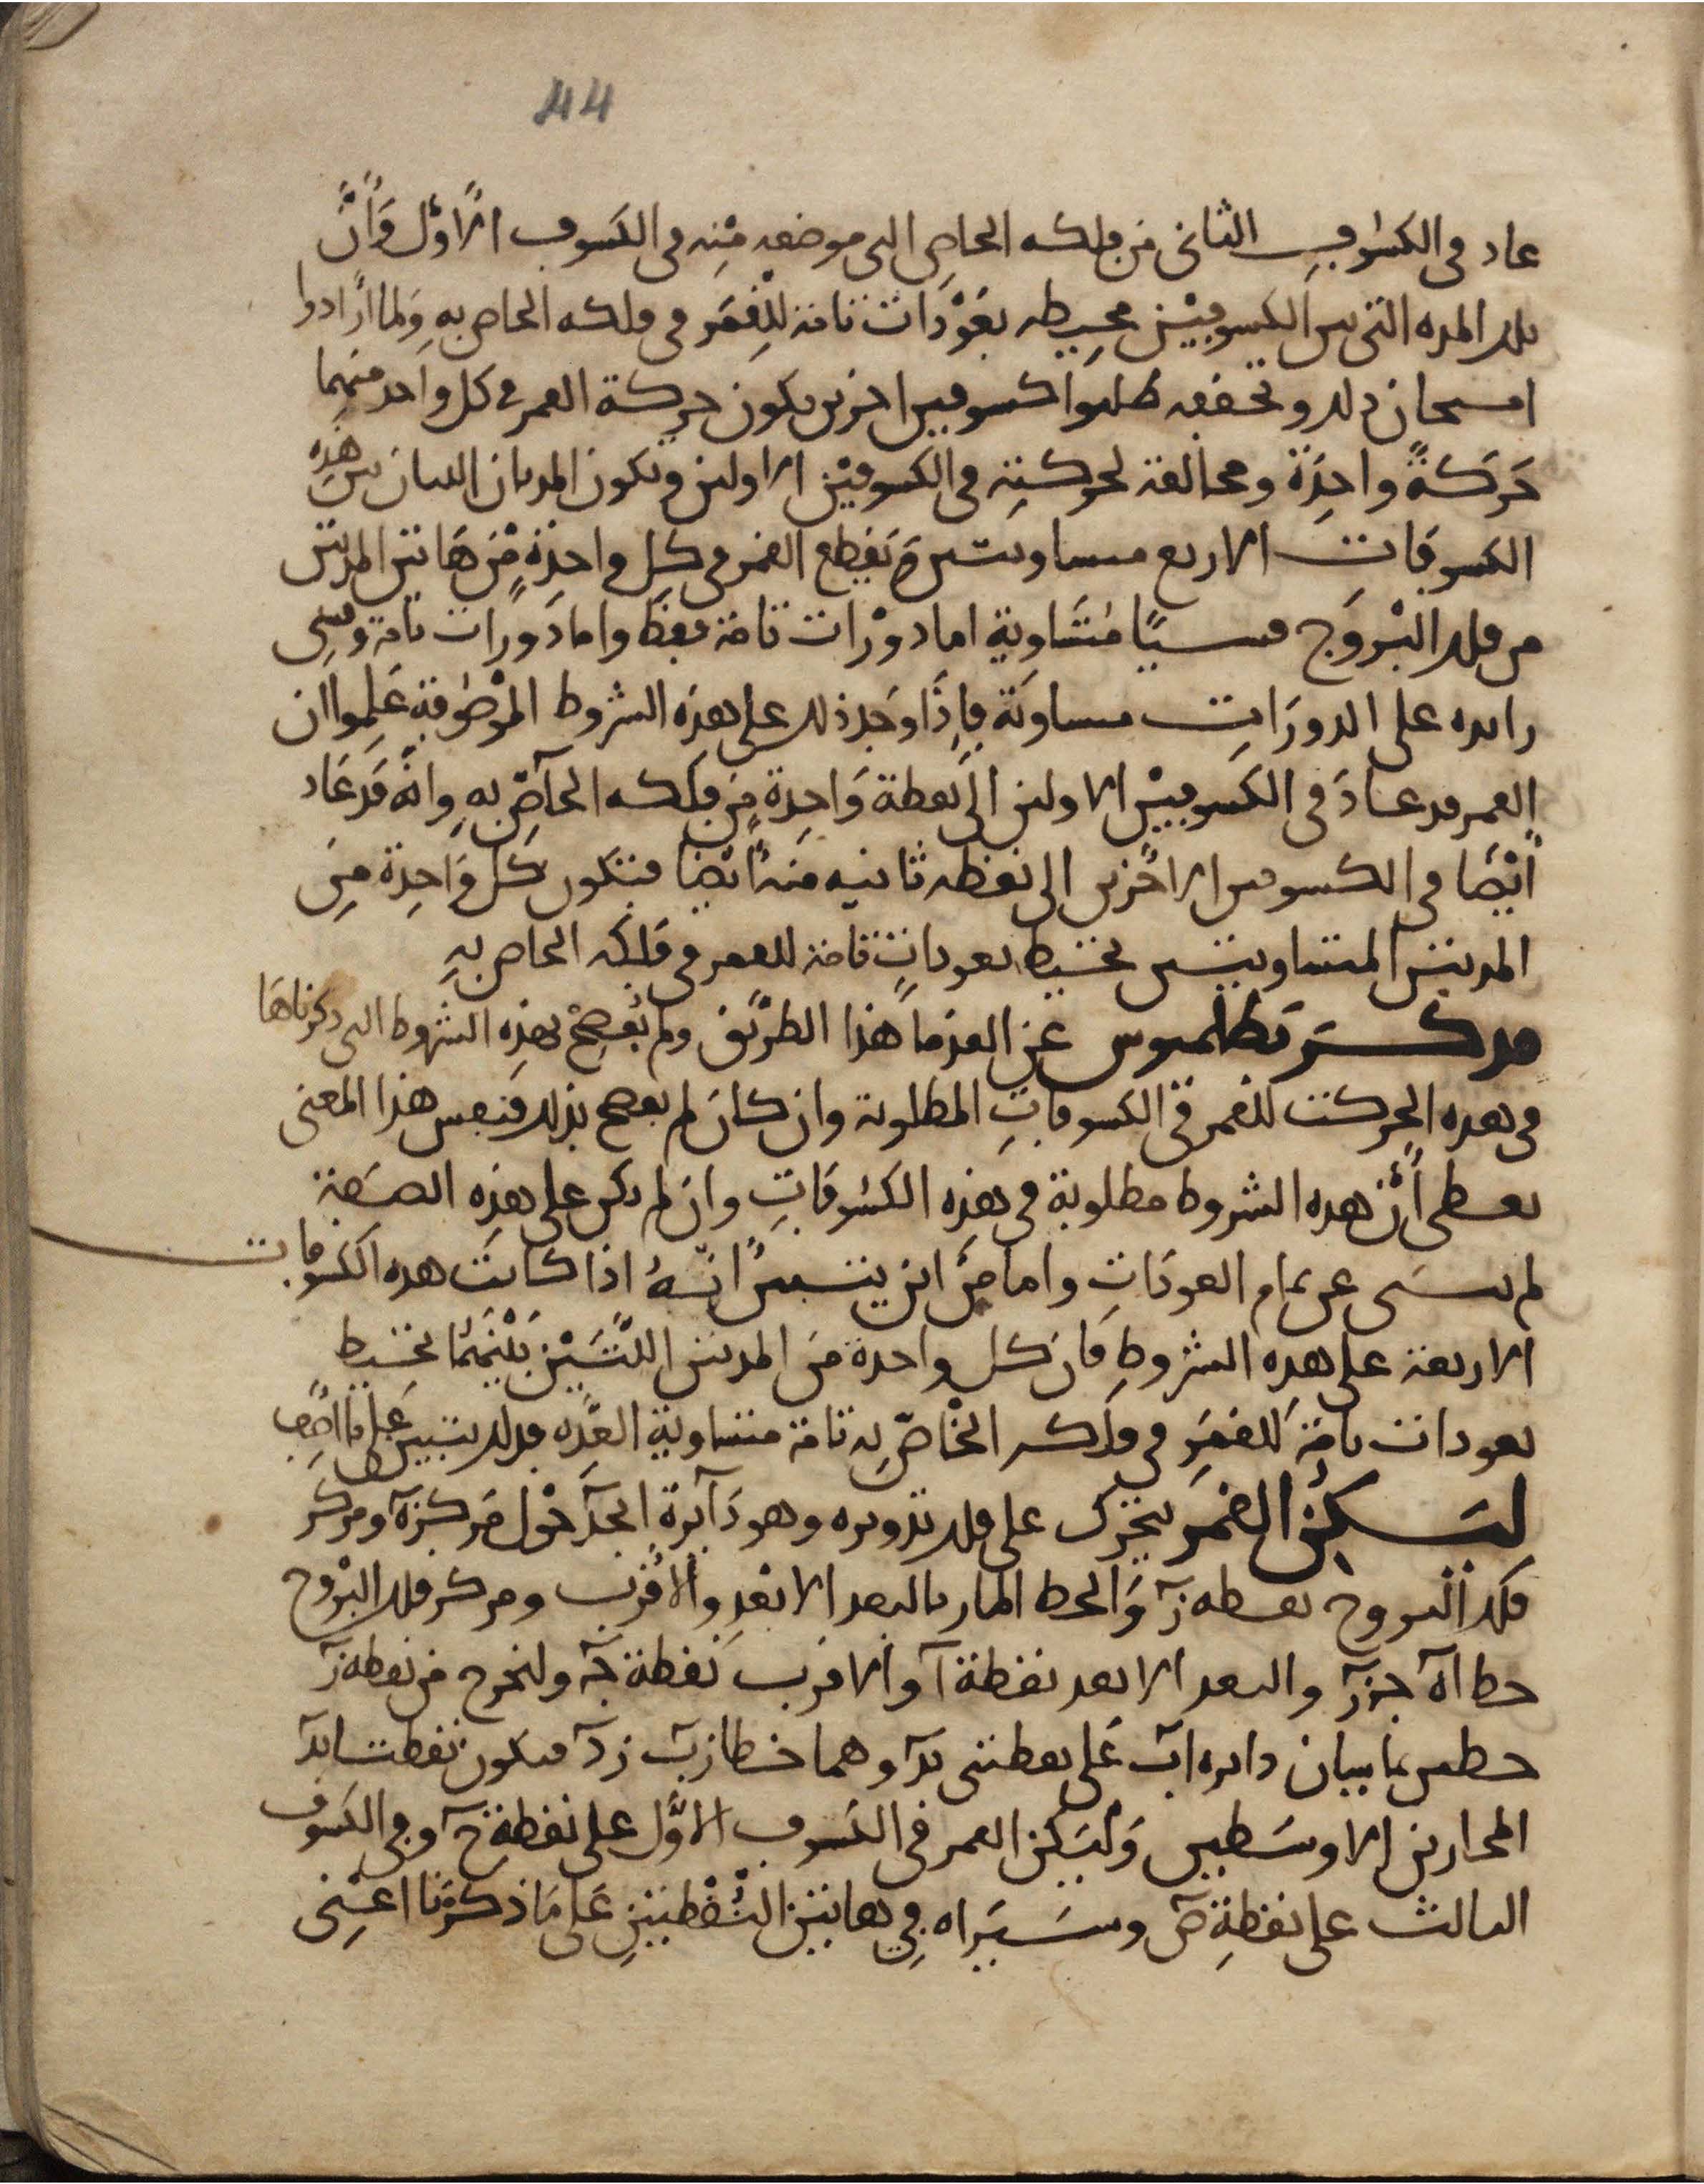 44
عاد في الكسوف الثاني من فلكه الخاص الى موضعه منه في الكسوف الاول وان
تلك المدة التي بين الكسوفين محيطه بعودات تامة للقمر في فلكه الخاص به ولما ارادوا
امتحان ذلك وتحقيقه طلبوا كسوفين اخرين يكون حركة القمر في كل واحد منهما
حركة واحدة ومخالفة لحركته في الكسوفين الاولين وتكون المدتان اللتان بين هذه
الكسوفات الاربع متساويتين ويقطع القمر في كل واحدة من هاتين المدتين
من فلك البروج قسيا متساوية اما دورات تامة فقط واما دورات تامة وقسي
زايده على الدورات متساوية فاذا وجد ذلك على هذه الشروط الموصوفة علموا ان
القمر قد عاد في الكسوفين الاولين الى نقطة واحدة من فلكه الخاص به وانه قد عاد
ايضا في الكسوفين الاخرين الى نقطه ثانيه منه ايضا فتكون كل واحدة من
المدتين المتساويتين تحيط بعودات تامة للقمر في فلكه الخاص به
فذكر بطلميوس عن القدما هذا الطريق ولم يفصح بهذه الشروط التي ذكرناها
في هذه الحركت للقمر في الكسوفات المطلوبة وان كان لم يفصح بذلك فنفس هذا المعنى
يعطي أن هذه الشروط مطلوبة في هذه الكسوفات وان لم تكن على هذه الصفة
لم عن تمام العودات واما من اين يتبين انه اذا كانت هذه الكسوفات
الاربعة على هذه الشروط فان كل واحدة من المدتين اللتين بينهما تحيط
بعودات تامة للقمر في فلكه الخاص به تامة متساوية العده فذلك يتبين على ما اصف
ليكن القمر يتحرك على فلك تدويره وهو دايرة ابجد حول مركزه ومركز
فلك البروج نقطه ز والخط المار بالبعد الابعد والاقرب ومركز فلك البروج
خط اه جز والبعد الابعد نقطة ا والاقرب نقطة ج ولنخرج من نقطه ز
خطين يماسان دايره اب على نقطتي بد وهما خطا زب زد فتكون نقطتا بد
المجازين الاوسطين وليكن القمر في الكسوف الاول على نقطة ح وفي الكسوف
الثالث على نقطة ص وسيراه في هاتين النقطتين على ما ذكرنا اعني